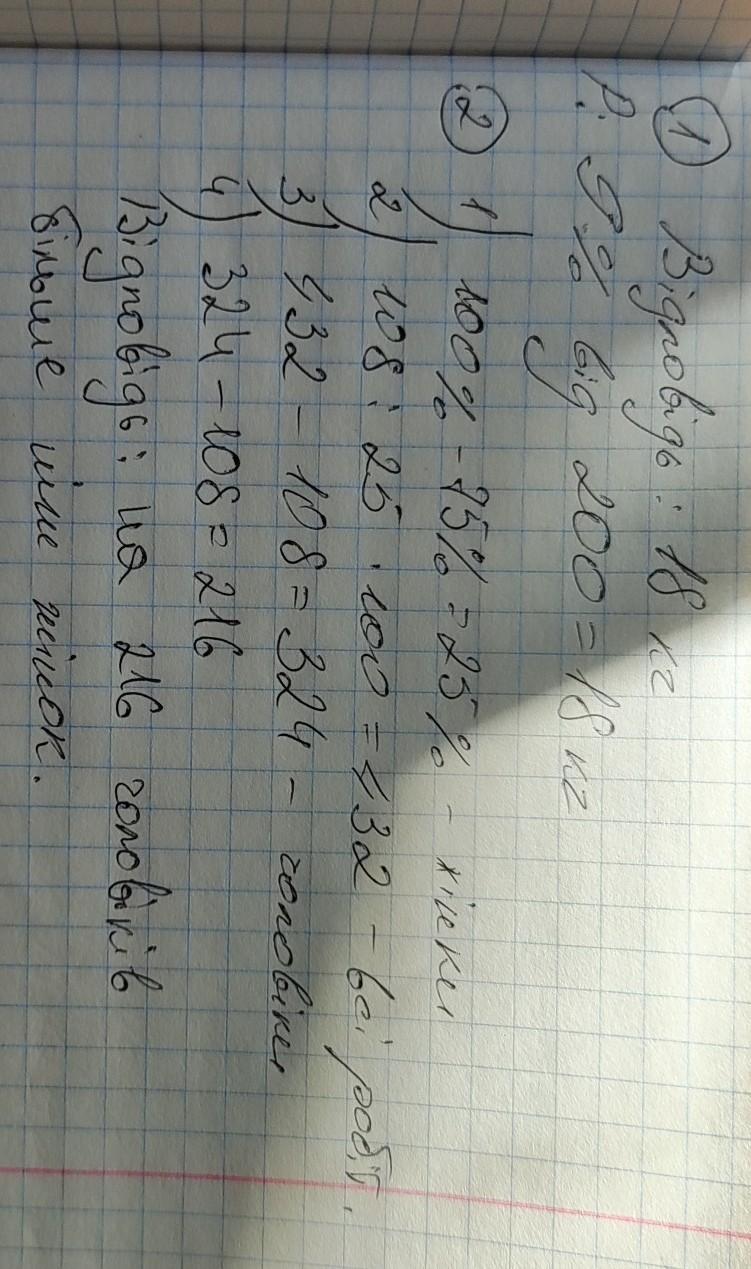 1 Відповідь: 18 кг
Р. 9% від 200 = 18 кг
2 1) 100% - 75% = 25% - жінки
2) 108 : 25 · 100 = 432 - всі робіт.
3) 432 - 108 = 324 - чоловіки
4) 324 - 108 = 216
Відповідь: на 216 чоловіків
більше ніж жінок.